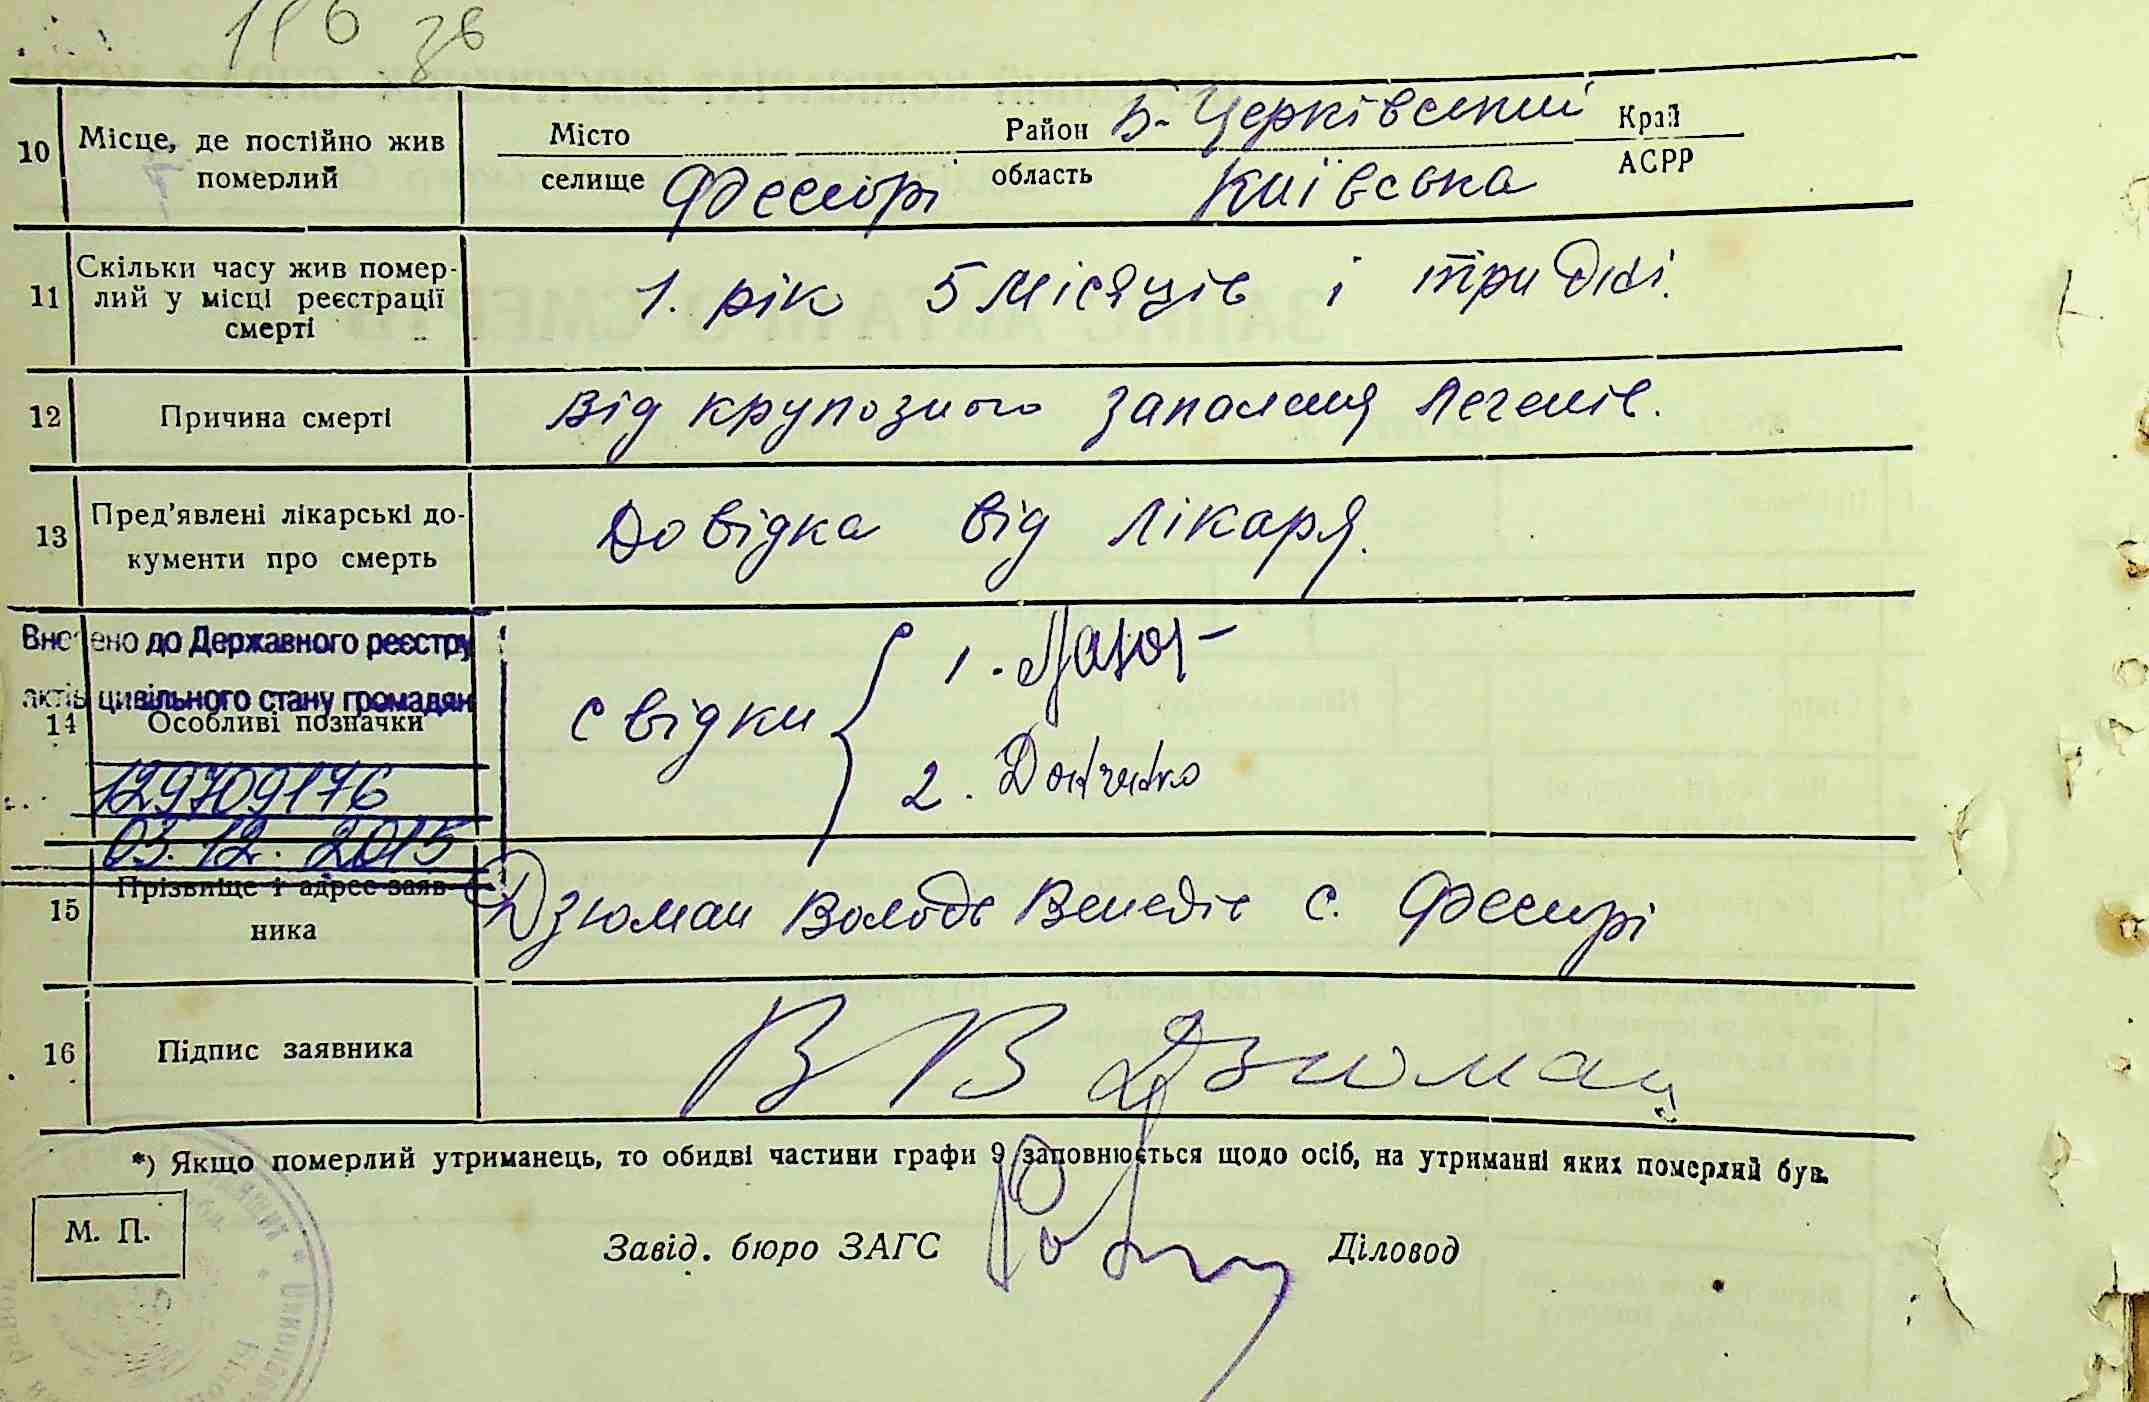 10 Місце, де постійно жив померлий
Місто Район Б-Церківський Край
селище область Київська АСРР
11 Скільки часу жив помер-
лий у місці реєстрації
смерті
1. рік 5 місяців і три дні.
12 Причина смерті Від крупозного запалення легенів.
13 Пред'явлені лікарські до-
кументи про смерть
Довідка від лікаря.
Внесено до Державного реєстру
актів цивільного стану громадян
14 Особливі позначки
129709176
03.12.2015
свідки
1.
2.
15 Прізвище і адрес заяв-
ника
Дзюман Волод Венедів с.
16 Підпис заявника В В Дзюман
*) Якщо померлий утриманець, то обидві частини графи 9 заповнюється щодо осіб, на утриманні яких померлий був.
М. П.
Завід. бюро ЗАГС Діловод